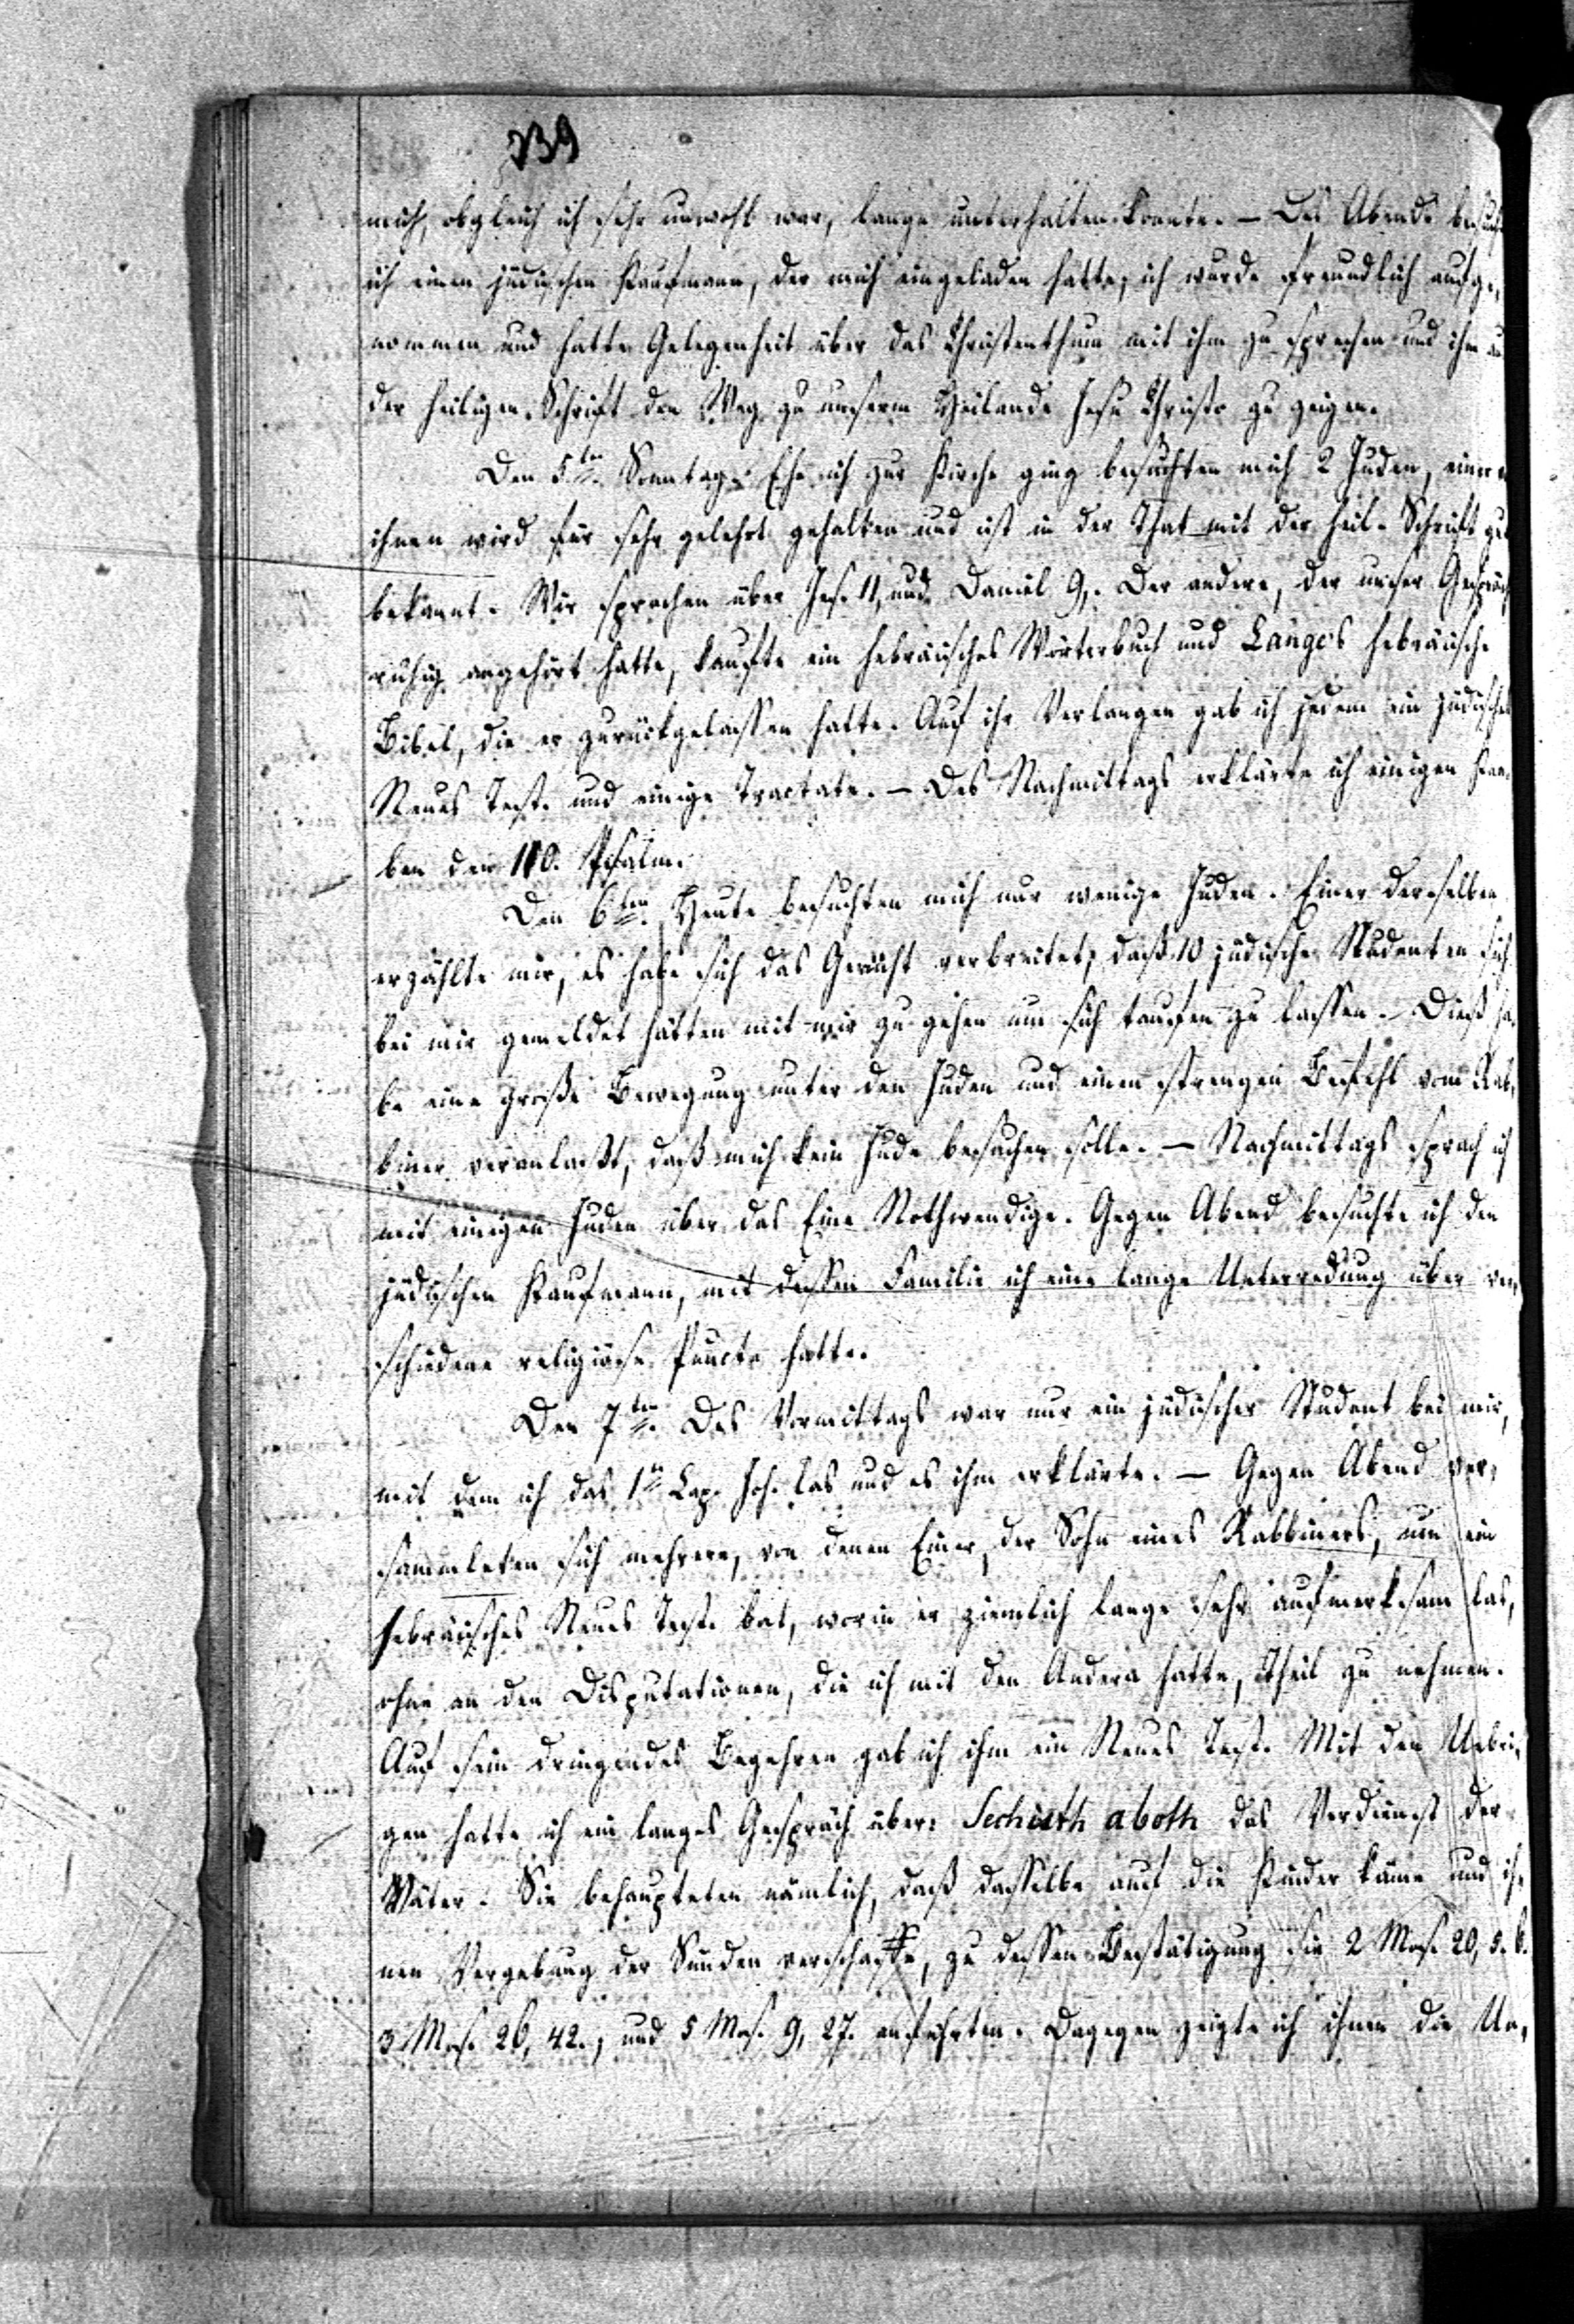 739
mich, obgleich ich sehr unwohl war, lange unterhalten konnte. — Des Abends besuchte
ich einen jüdischen Kaufmann, der mich eingeladen hatte, ich wurde freundlich aufge-
nommen und hatte Gelegenheit über das Christenthum mit ihm zu sprechen und ihm aus
der heiligen Schrift den Weg zu unserm Heilande Jesu Christo zu zeigen.
Den 5ten. Sonntag. Ehe ich zur Kirche ging besuchten mich 2 Juden, einer
ihnen wird für sehr gelehrt gehalten und ist in der That mit der heil. Schrift gut
bekannt. Wir sprachen über Jes. 11, und Daniel 9,. Der andere, der unser Gespräch
ruhig angehört hatte, kaufte ein hebräisches Wörterbuch und Lange's hebräische
Bibel, die er zurückgelassen hatte. Auf ihr Verlangen gab ich jedem ein jüdisches
Neues Test. und einige Tractate. — Des Nachmittags erklärte ich einigen Kna-
ben den 110. Psalm.
Den 6ten. Heute besuchten mich nur wenige Juden. Einer derselben
erzählte mir, es habe sich das Gerücht verbreitet, daß 10 jüdische Studenten sich
bei mir gemeldet hätten mit mir zu gehen um sich taufen zu lassen. Dieß ha-
be eine große Bewegung unter den Juden und einen strengen Befehl vom Rab-
biner veranlaßt, daß mich kein Jude besuchen solle. — Nachmittags sprach ich
mit einigen Juden über das Eine Nothwendige. Gegen Abend besuchte ich den
jüdischen Kaufmann, mit dessen Familie ich eine lange Unterredung über ver-
schiedene religiöse Puncte hatte.
Den 7ten. Des Vormittags war nur ein jüdischer Student bei mir,
mit dem ich das 1te Cap. Joh. las und es ihm erklärte. — Gegen Abend ver-
sammleten sich mehrere, von denen Einer, der Sohn eines Rabbiners, um ein
hebräisches Neues Test. bat, worin er ziemlich lange sehr aufmerksam las,
ohne an den Disputationen, die ich mit den Andern hatte, Theil zu nehmen.
Auf sein dringendes Begehren gab ich ihm ein Neues Test. Mit den Uebri-
gen hatte ich ein langes Gespräch über: Sechuth aboth das Verdienst der
Väter. Sie behaupteten nämlich, daß dasselbe auf die Kinder käme und ih-
nen Vergebung der Sünden verschaffe, zu dessen Bestätigung sie 2 Mos. 20, 5. 6.
3 Mos. 26, 42., und 5 Mos. 9, 27. anführten. Dagegen zeigte ich ihnen die Un-